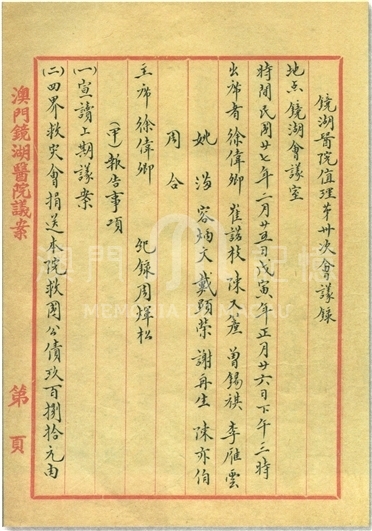 鏡湖醫院值理第卅次會議錄
地点鏡湖會議室
時間民國廿七年二月廿五日戊寅年正月廿六日下午三時
出席者徐偉卿 崔諾枝 陳天 曾錫祺 李雁雲
姚滿 容炳文 戴顕榮 謝再生 陳亦伯
周合
主席徐偉卿 紀錄周輝松
(甲)報告事項
(一)宣讀上期議案
(二)四界救灾會捐送本院救國公債玖百捌拾元由
澳門鏡湖醫院議案
第 頁
澳門記憶
MEMÓRIA DE MACAU